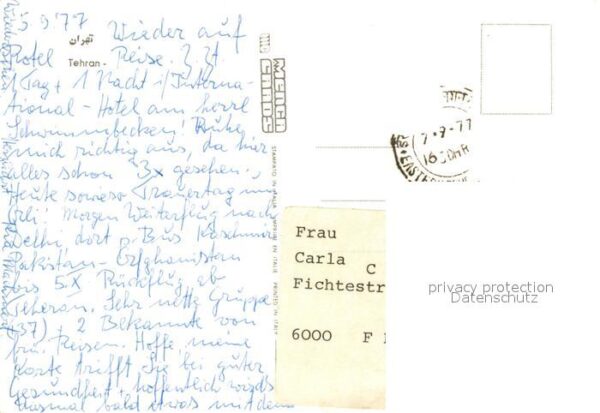 5 9 77 Wieder auf
تهران
Rotel - Reise. Z. Zt.
Tehran -
1 Tag + 1 Nacht i/Interna-
tional - Hotel am herrl.
Schwimmbecken! Ruhe
mich richtig aus, da hier
alles schon 3x gesehen.
Heute sowieso Trauertag im
Morgen Weiterflug nach
Delhi, dort p. Bus Kaschmir
Pakistan - Afghanistan
bis 5.X Rückflug ab
Teheran. Sehr nette Gruppe
(37) + 2 Bekannte von
fr. Reisen. Hoffe, meine
Karte trifft Sie bei guter
Gesundheit + hoffentlich wird's
diesmal bald etwas mit dem
STAMPATO IN ITALIA
IMPRIMÉ EN ITALIE
PRINTED IN ITALY
7-9-77
1630HR
Frau
Carla C
Fichtestr
6000 F
privacy protection
Datenschutz